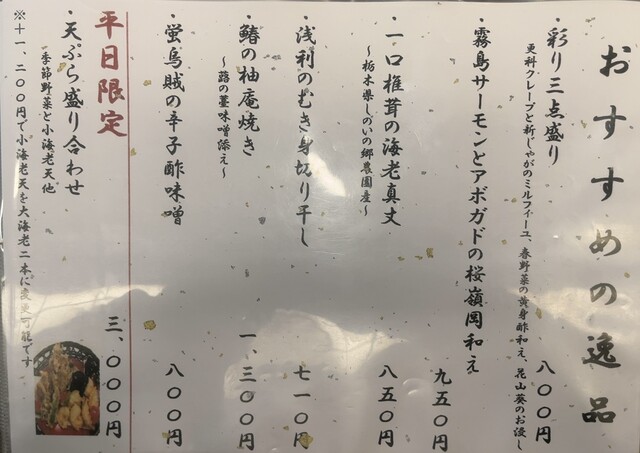 おすすめの逸品
・彩り三点盛り 八〇〇円
更科クレープと新じゃがのミルフィーユ、春野菜の黄身酢和え、花山葵のお浸し
・霧島サーモンとアボガドの桜嶺岡和え 九五〇円
・一口椎茸の海老真丈 八五〇円
～栃木県しのいの郷農園産～
・浅利のむき身切り干し 七一〇円
・鰆の柚庵焼き 一、三〇〇円
～蕗の薹味噌添え～
・蛍烏賊の辛子酢味噌 八〇〇円
平日限定
・天ぷら盛り合わせ 三、〇〇〇円
季節野菜と小海老天他
※＋一、二〇〇円で小海老天を大海老二本に変更可能です